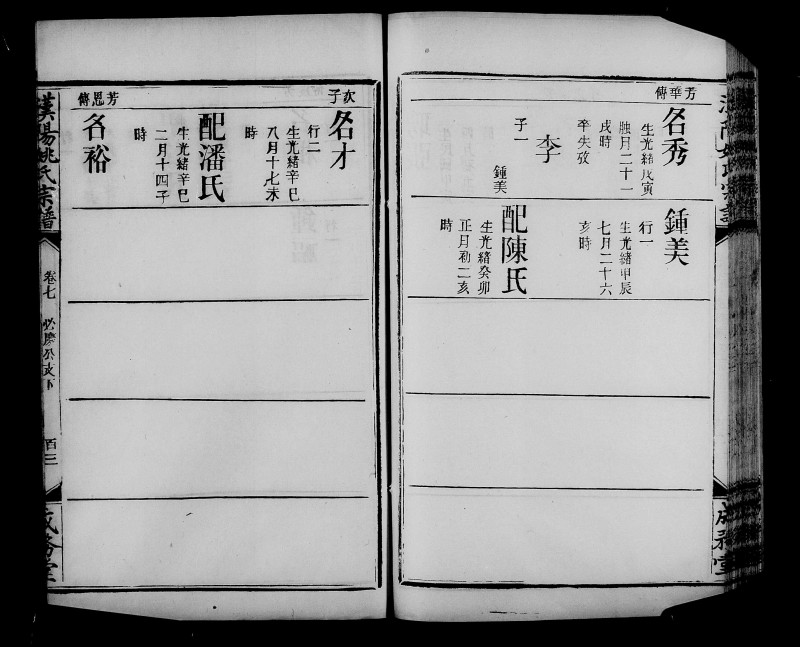 芳華傳
名秀
生光緒戊寅
臘月二十一
戌時
卒失攷
李
子一
鍾美
鍾美
行一
生光緒甲辰
七月二十六
亥時
配陳氏
生光緒癸卯
正月初二亥
時
次子
名才
行二
生光緒辛巳
八月十七未
時
配潘氏
生光緒辛巳
二月十四子
時
芳思傳
名裕
漢陽姚氏宗譜
卷七
必慶公支下
百三
成務堂
成務堂